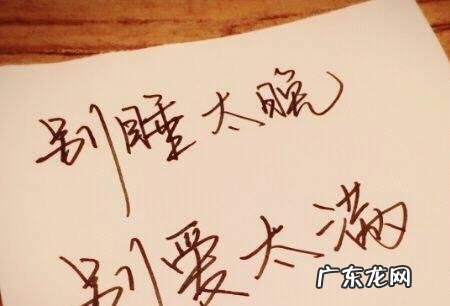 别睡太晚
别爱太满
广东龙网